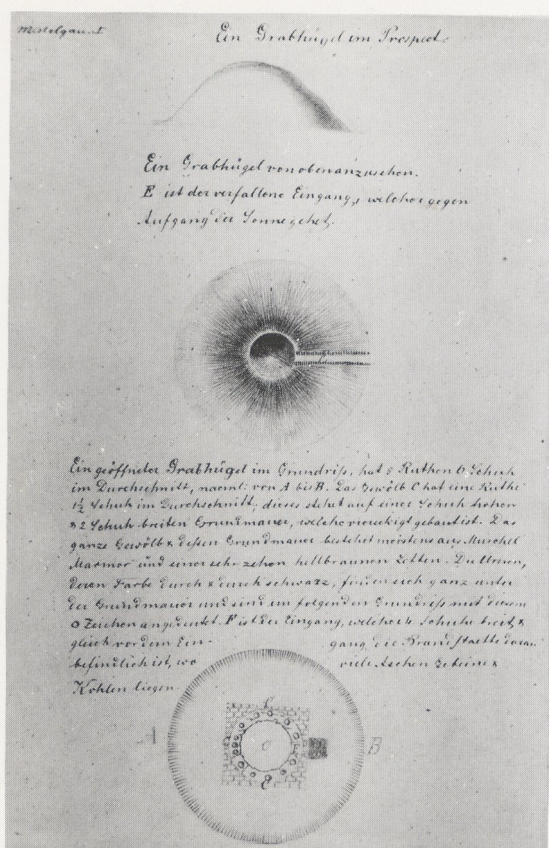 Mistelgau. I
Ein Grabhügel im Prospect.
Ein Grabhügel von oben anzusehen.
E ist der verfallene Eingang, welcher gegen
Aufgang der Sonne gehet.
Ein geöffneter Grabhügel im Grundriss, hat 8 Ruthen 6 Schuh
im Durchschnitt, nacml: von A bis B. Das Gewölb C hat eine Ruthe
1½ Schuh im Durchschnitt, dieses stehet auf einer Schuh hohen
& 2 Schuh breiten Grundmauer, welche viereckigt gebaut ist. Das
ganze Gewölb & dessen Grundmauer bestehet meistens aus Muschel
Marmor und einer sehr zehen hellbraunen Letten. Die Urnen,
deren Farbe durch & durch schwarz, finden sich ganz unter
der Grundmauer und sind im folgenden Grundriss mit diesem
o Zeichen angedeutet. F ist der Eingang, welcher 4 Schuhe breit, &
gleich vor dem Ein- gang die Brandstaette daran
befindlich ist, wo viele Aschen Gebeine &
Kohlen liegen.
A C B
C